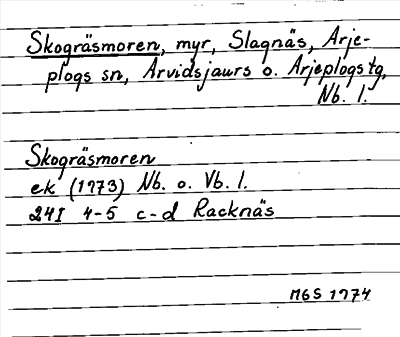 Skogräsmoren, myr, Slagnäs, Arje-
plogs sn, Arvidsjaurs o. Arjeplogs tg,
Nb. l.
Skogräsmoren
ek (1973) Nb. o. Vb. l.
24I 4-5 c-d Racknäs
MGS 1974